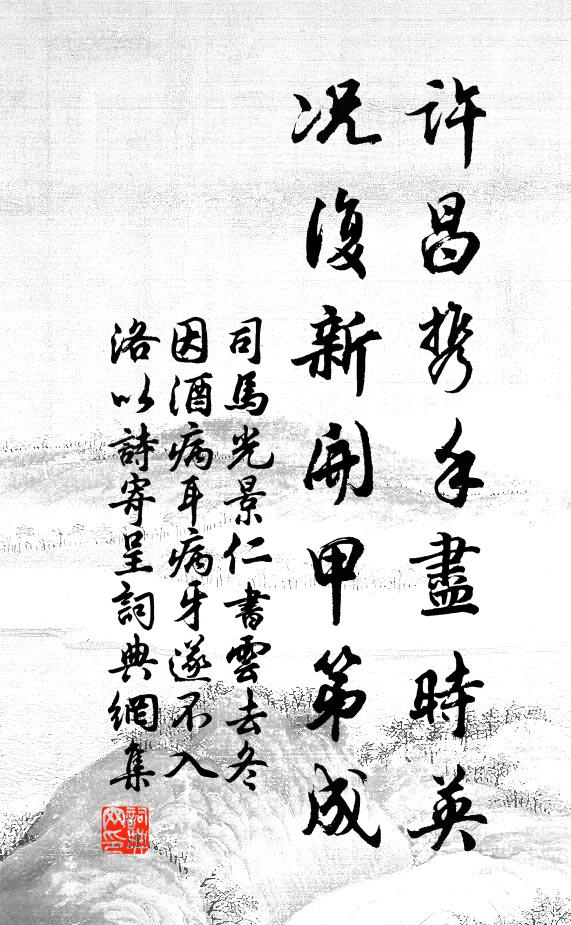 许昌携手盡時英
况復新開甲第成
司馬光景仁書雲去冬
因酒病耳病牙遂不入
洛以詩寄呈詞典網集
詞典網印